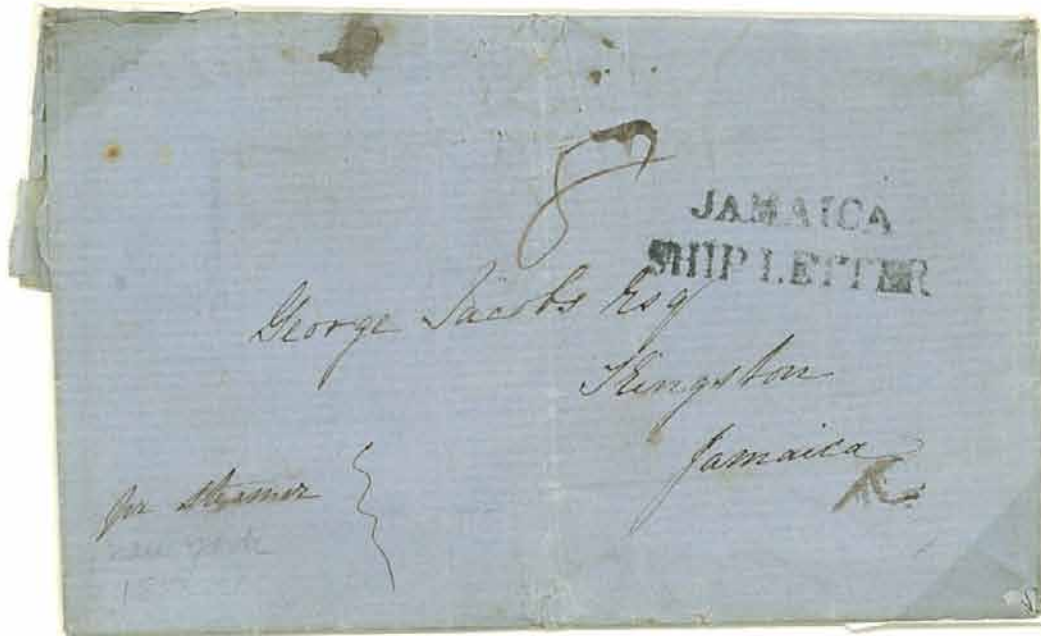 8
JAMAICA
SHIP LETTER
George Jacobs Esq
Kingston
Jamaica
pr Steamer
new york